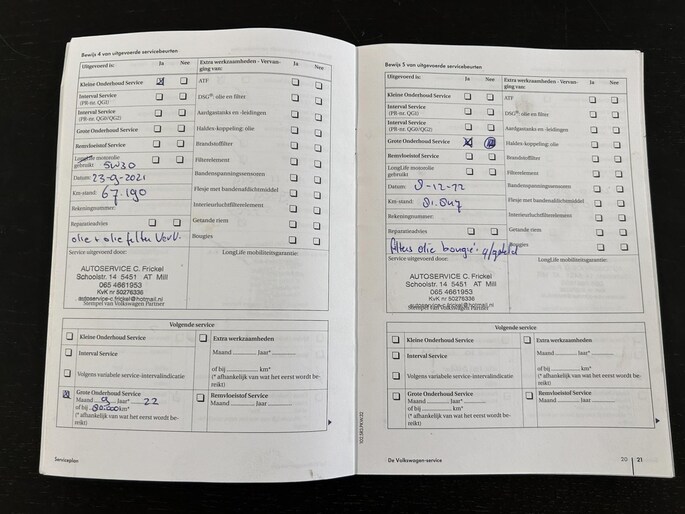 Bewijs 4 van uitgevoerde servicebeurten
Uitgevoerd is: Ja Nee
Kleine Onderhoud Service
Interval Service
(PR-nr. QGI)
Interval Service
(PR-nr. QG0/QG2)
Grote Onderhoud Service
Remvloeistof Service
LongLife motorolie
gebruikt: 5W30
Datum: 23-9-2021
Km-stand: 67.190
Rekeningnummer:
Reparatieadvies
olie + olie filter Verv.
Service uitgevoerd door:
Extra werkzaamheden - Vervanging van: Ja Nee
ATF
DSG®: olie en filter
Aardgastanks en -leidingen
Haldex-koppeling: olie
Brandstoffilter
Filterelement
Bandenspanningssensoren
Flesje met bandenafdichtmiddel
Interieurluchtfilterelement
Getande riem
Bougies
LongLife mobiliteitsgarantie:
AUTOSERVICE C. Frickel
Schoolstr. 14 5451 AT Mill
065 4661953
KvK nr 50276336
autoservice-c.frickel@hotmail.nl
Stempel van Volkswagen Partner
Volgende service
Kleine Onderhoud Service
Interval Service
Volgens variabele service-intervalindicatie
Grote Onderhoud Service
Maand 9 Jaar* 22
of bij 90.000 km*
(* afhankelijk van wat het eerst wordt bereikt)
Extra werkzaamheden
Maand Jaar*
of bij km*
(* afhankelijk van wat het eerst wordt bereikt)
Remvloeistof Service
Maand Jaar
Serviceplan
Bewijs 5 van uitgevoerde servicebeurten
Uitgevoerd is: Ja Nee
Kleine Onderhoud Service
Interval Service
(PR-nr. QGI)
Interval Service
(PR-nr. QG0/QG2)
Grote Onderhoud Service
Remvloeistof Service
LongLife motorolie
gebruikt
Datum: 9-12-22
Km-stand: 81.847
Rekeningnummer:
Reparatieadvies
filters olie bougie's
Service uitgevoerd door:
Extra werkzaamheden - Vervanging van: Ja Nee
ATF
DSG®: olie en filter
Aardgastanks en -leidingen
Haldex-koppeling: olie
Brandstoffilter
Filterelement
Bandenspanningssensoren
Flesje met bandenafdichtmiddel
Interieurluchtfilterelement
Getande riem
Bougies
LongLife mobiliteitsgarantie:
AUTOSERVICE C. Frickel
Schoolstr. 14 5451 AT Mill
065 4661953
KvK nr 50276336
autoservice-c.frickel@hotmail.nl
Stempel van Volkswagen Partner
Volgende service
Kleine Onderhoud Service
Interval Service
Volgens variabele service-intervalindicatie
Grote Onderhoud Service
Maand Jaar*
of bij km*
(* afhankelijk van wat het eerst wordt bereikt)
Extra werkzaamheden
Maand Jaar*
of bij km*
(* afhankelijk van wat het eerst wordt bereikt)
Remvloeistof Service
Maand Jaar
De Volkswagen-service
20 21